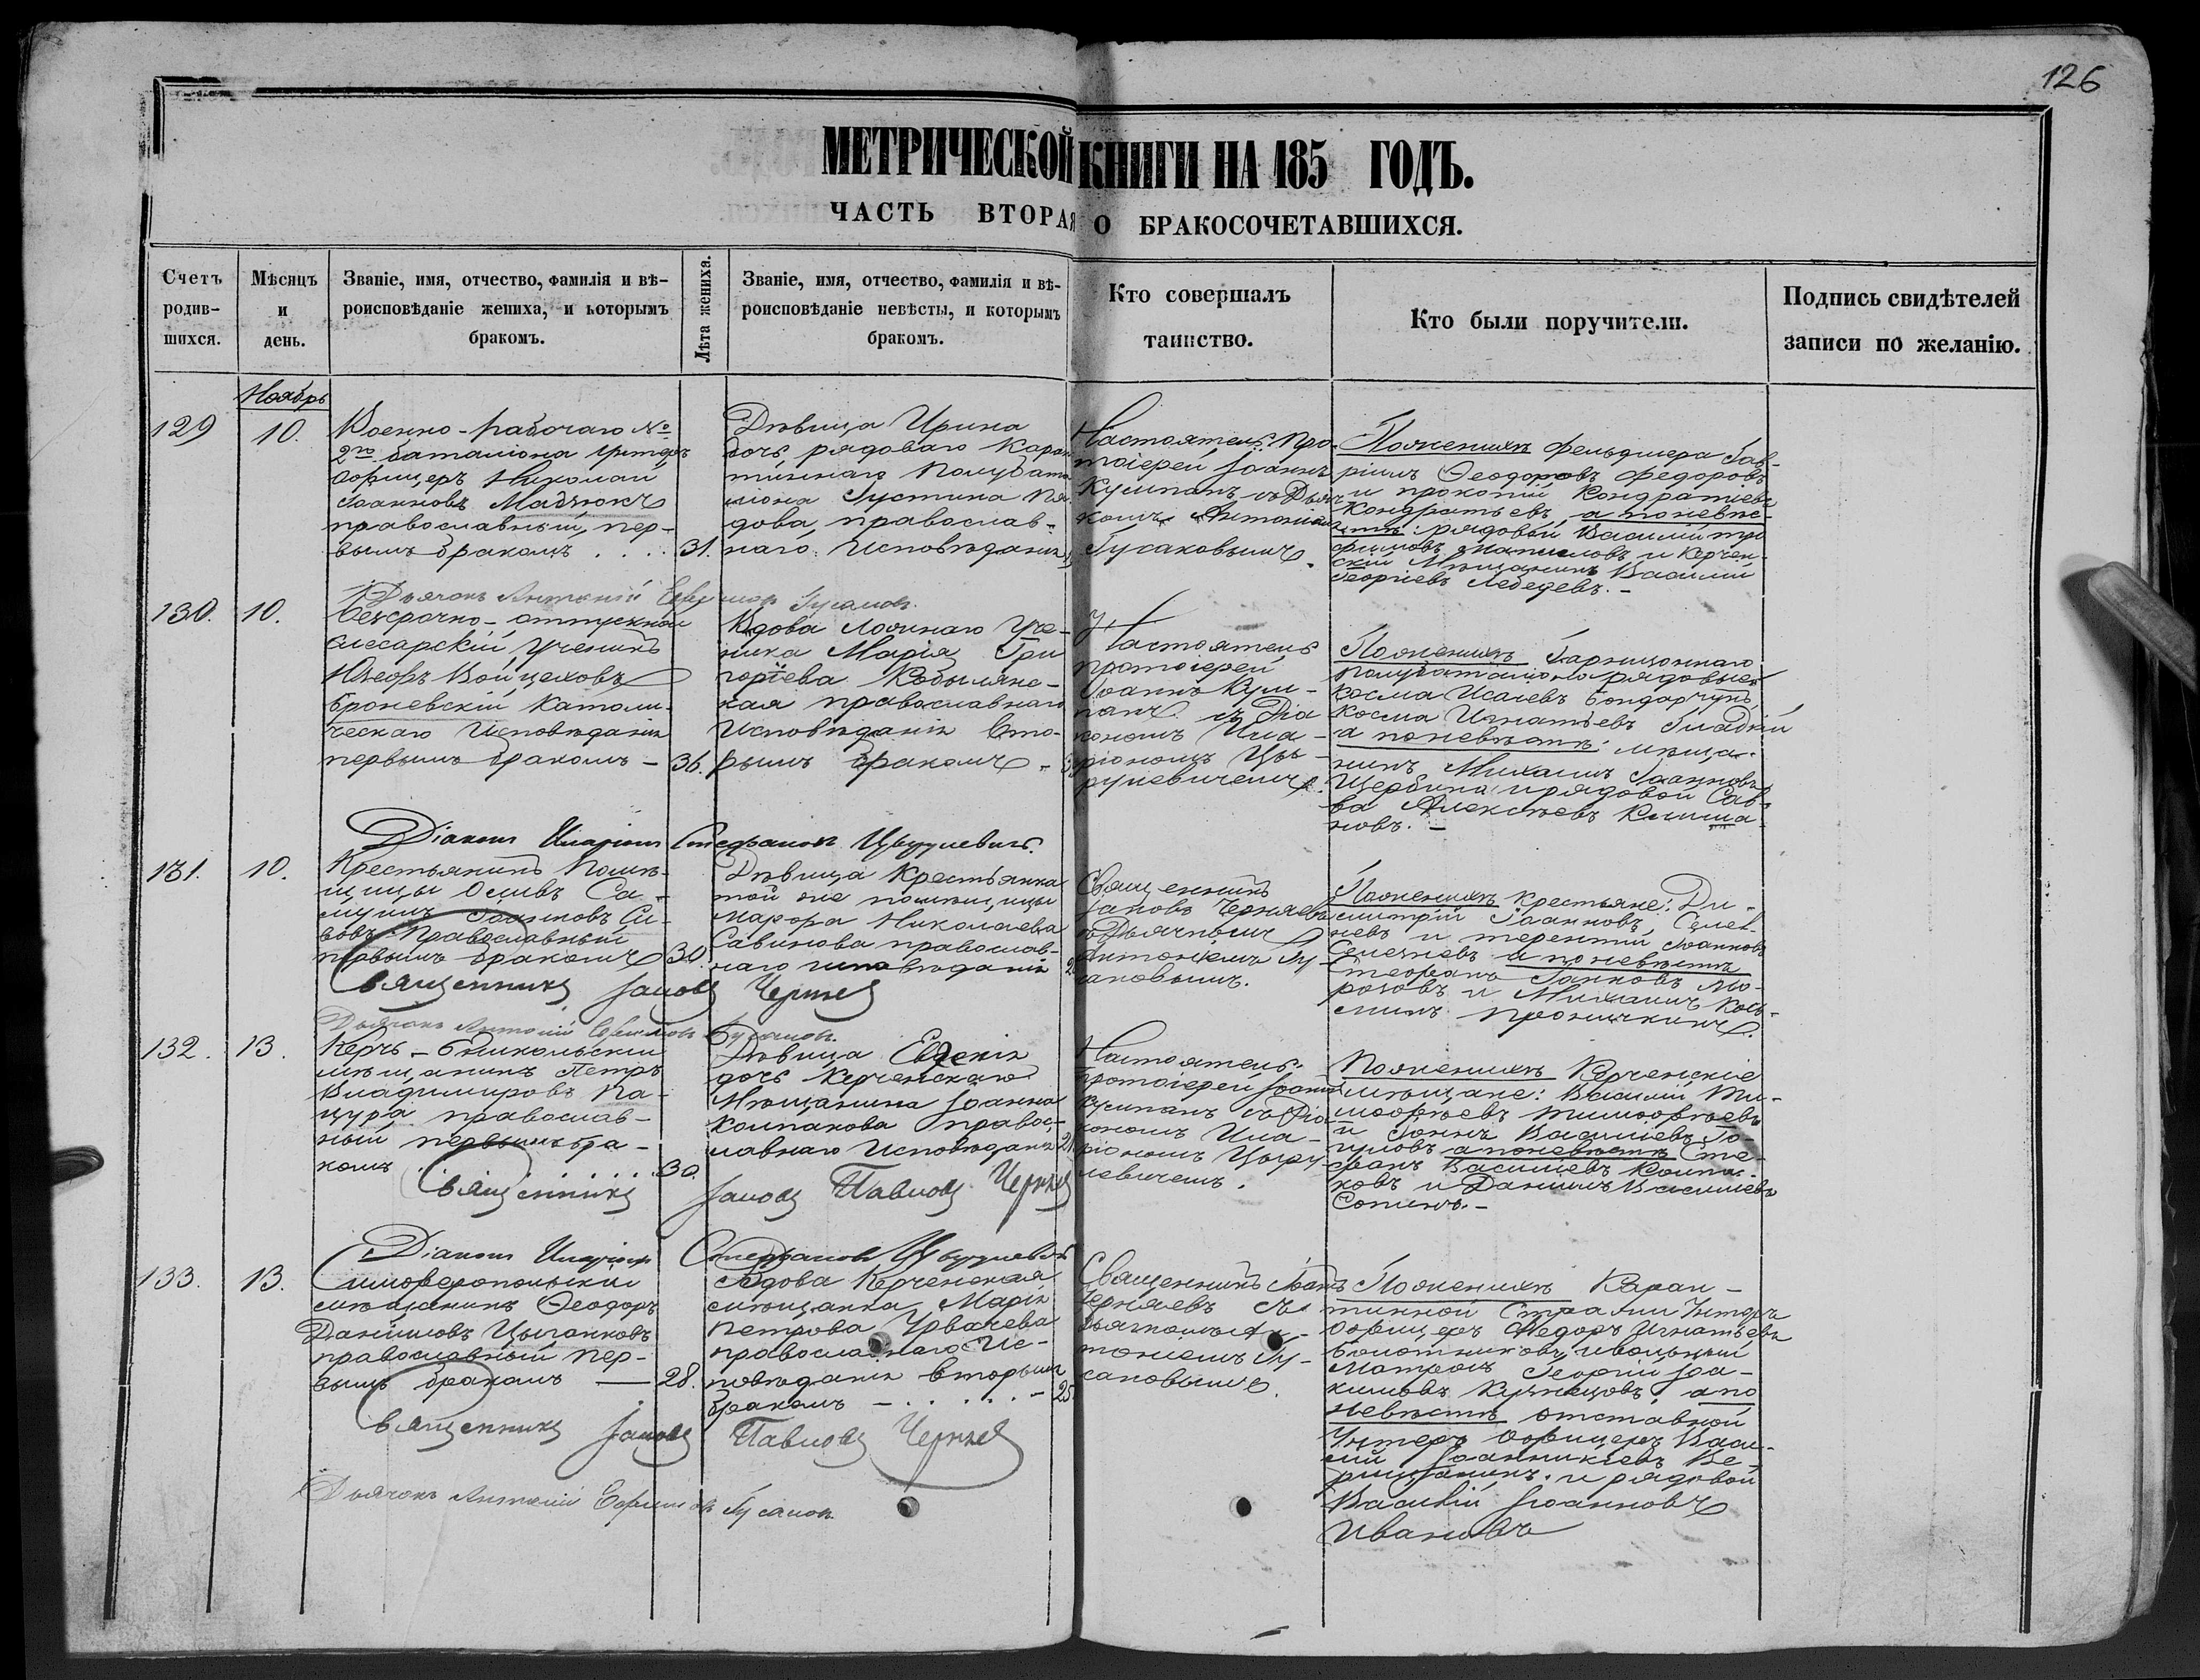 126
МЕТРИЧЕСКОЙ КНИГИ НА 185 ГОДЪ.
ЧАСТЬ ВТОРАЯ О БРАКОСОЧЕТАВШИХСЯ.
Счетъ родив-шихся.
Мѣсяцъ и день.
Званіе, имя, отчество, фамилія и вѣ-
роисповѣданіе жениха, и которымъ
бракомъ.
Лѣта жениха.
Званіе, имя, отчество, фамилія и вѣ-
роисповѣданіе невѣсты, и которымъ
бракомъ.
Кто совершалъ
таинство.
Кто были поручители.
Подпись свидѣтелей
записи по желанію.
Ноябрь
129
10.
Военно-рабочаго №
2го баталіона Унтеръ
Офицеръ Николай
Іоанновъ
православный, пер-
вымъ бракомъ . . . .
31.
Дѣвица Ирина
дочь рядоваго Каран
тиннаго Полубата
ліона Густина
дова, православ-
наго Исповѣданія
Настоятель Про-
тоіерей Іоаннъ
Кумпанъ съ Дьяч
комъ Антоніемъ
Гусаковымъ.
По женихѣ Фельдшера Гав-
ріилъ Ѳеодоровъ Федоровъ
и Прокопій Кондратіевъ
Кондратьевъ, а по невѣс-
тѣ: рядовый Василій
и Керчен-
скій Мѣщанинъ Василій
Георгіевъ Лебедевъ. -
Дьячокъ Антоній Ефимовъ Гусаковъ.
130.
10.
безсрочно-отпускной
слесарскій ученикъ
Юзефъ Войцеховъ
Броневскій Католи-
ческаго Исповѣданія
первымъ бракомъ -
36.
Вдова Уче-
ника Марія Гри
горіева Кобылянс-
кая православнаго
Исповѣданія Вто-
рымъ бракомъ -
Настоятель
протоіерей
Іоаннъ Кум-
панъ съ Діа
кономъ Ила-
ріономъ Цы-
рулевичемъ.
По женихѣ Гарнизоннаго
полубаталіона рядовые
Косма Исаіевъ Бондарчукъ,
Косма Игнатьевъ Гладкій
а по невѣстѣ: мѣща-
нинъ Михаилъ Іоанновъ
Щербина и рядовой Сав-
ва Алексѣевъ
новъ. -
Діаконъ Иларіонъ Стефановъ Цырулевичъ.
131.
10.
Крестьянинъ Помѣ-
щицы Са-
муилъ Іоанновъ Си-
вовъ Православный
первымъ бракомъ
30.
Дѣвица Крестьянка
той же помѣщицы
Марфа Николаева
Савинова православ-
наго исповѣданія
Священникъ
Іаковъ Черняевъ
съ Дьячкомъ
Антоніемъ Гу-
саковымъ.
По женихѣ Крестьяне: Ди-
митрій Іоанновъ, Селез-
невъ и Терентій Іоанновъ
Селезневъ а по невѣстѣ
Стефанъ Іоанновъ Мо-
розовъ и Михаилъ Козь-
минъ Проничкинъ.
Священникъ Іаковъ Черняевъ
Дьячокъ Антоній Ефимовъ Гусаковъ.
132.
13.
Керчь-Еникольскій
мѣщанинъ Петръ
Владимировъ Ка-
цура православ-
ный первымъ бра-
комъ . . . . . .
30.
Дѣвица Евдокія
дочь Керченскаго
Мѣщанина Іоанна
Колпакова правос-
лавнаго Исповѣданія
21
Настоятель
Протоіерей Іоаннъ
Кумпанъ съ Діа
кономъ Ила-
ріономъ Цыру-
левичемъ.
По женихѣ Керченскіе
мѣщане: Василій Ти-
моѳѣевъ Тимоѳѣевъ
и Іоаннъ Василіевъ
а по невѣстѣ Сте-
фанъ Василіевъ Колпа-
ковъ и Даніилъ Василіевъ
Сопинъ. -
Священникъ Іаковъ Павловъ Черняевъ
Діаконъ Иларіонъ Стефановъ Цырулевичъ
133.
13.
Симферопольскій
мѣщанинъ Ѳеодоръ
Даніиловъ Цыганковъ
православный пер-
вымъ бракомъ —
28.
Вдова Керченская
мѣщанка Марія
Петрова Урвачева
православнаго Ис-
повѣданія вторымъ
бракомъ - . . . . . -
25
Священникъ Іаковъ
Черняевъ съ
Дьячкомъ Ан-
тоніемъ Гу-
саковымъ.
По женихѣ Каран-
тинной Стражи Унтеръ
Офицеръ Ѳедоръ Игнатьевъ
Болотниковъ, и вольный
Матрозъ Георгій Іоа-
кимовъ Кузнецовъ, а по
невѣстѣ отставной
Унтеръ Офицеръ Васи-
лій Іоанникіевъ Ве-
и рядовой
Василій Іоанновъ
Ивановъ
Священникъ Іаковъ Павловъ Черняевъ
Дьячокъ Антоній Ефимовъ Гусаковъ.